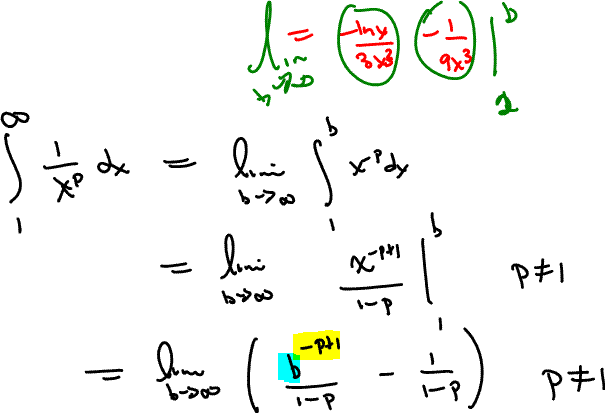 lim b→∞ = -lnx/3x³ - 1/9x³ |₁ᵇ
∫₁^∞ 1/xᵖ dx = lim b→∞ ∫₁ᵇ x⁻ᵖ dx
= lim b→∞ x⁻ᵖ⁺¹/1-p |₁ᵇ p≠1
= lim b→∞ ( b⁻ᵖ⁺¹/1-p - 1/1-p ) p≠1